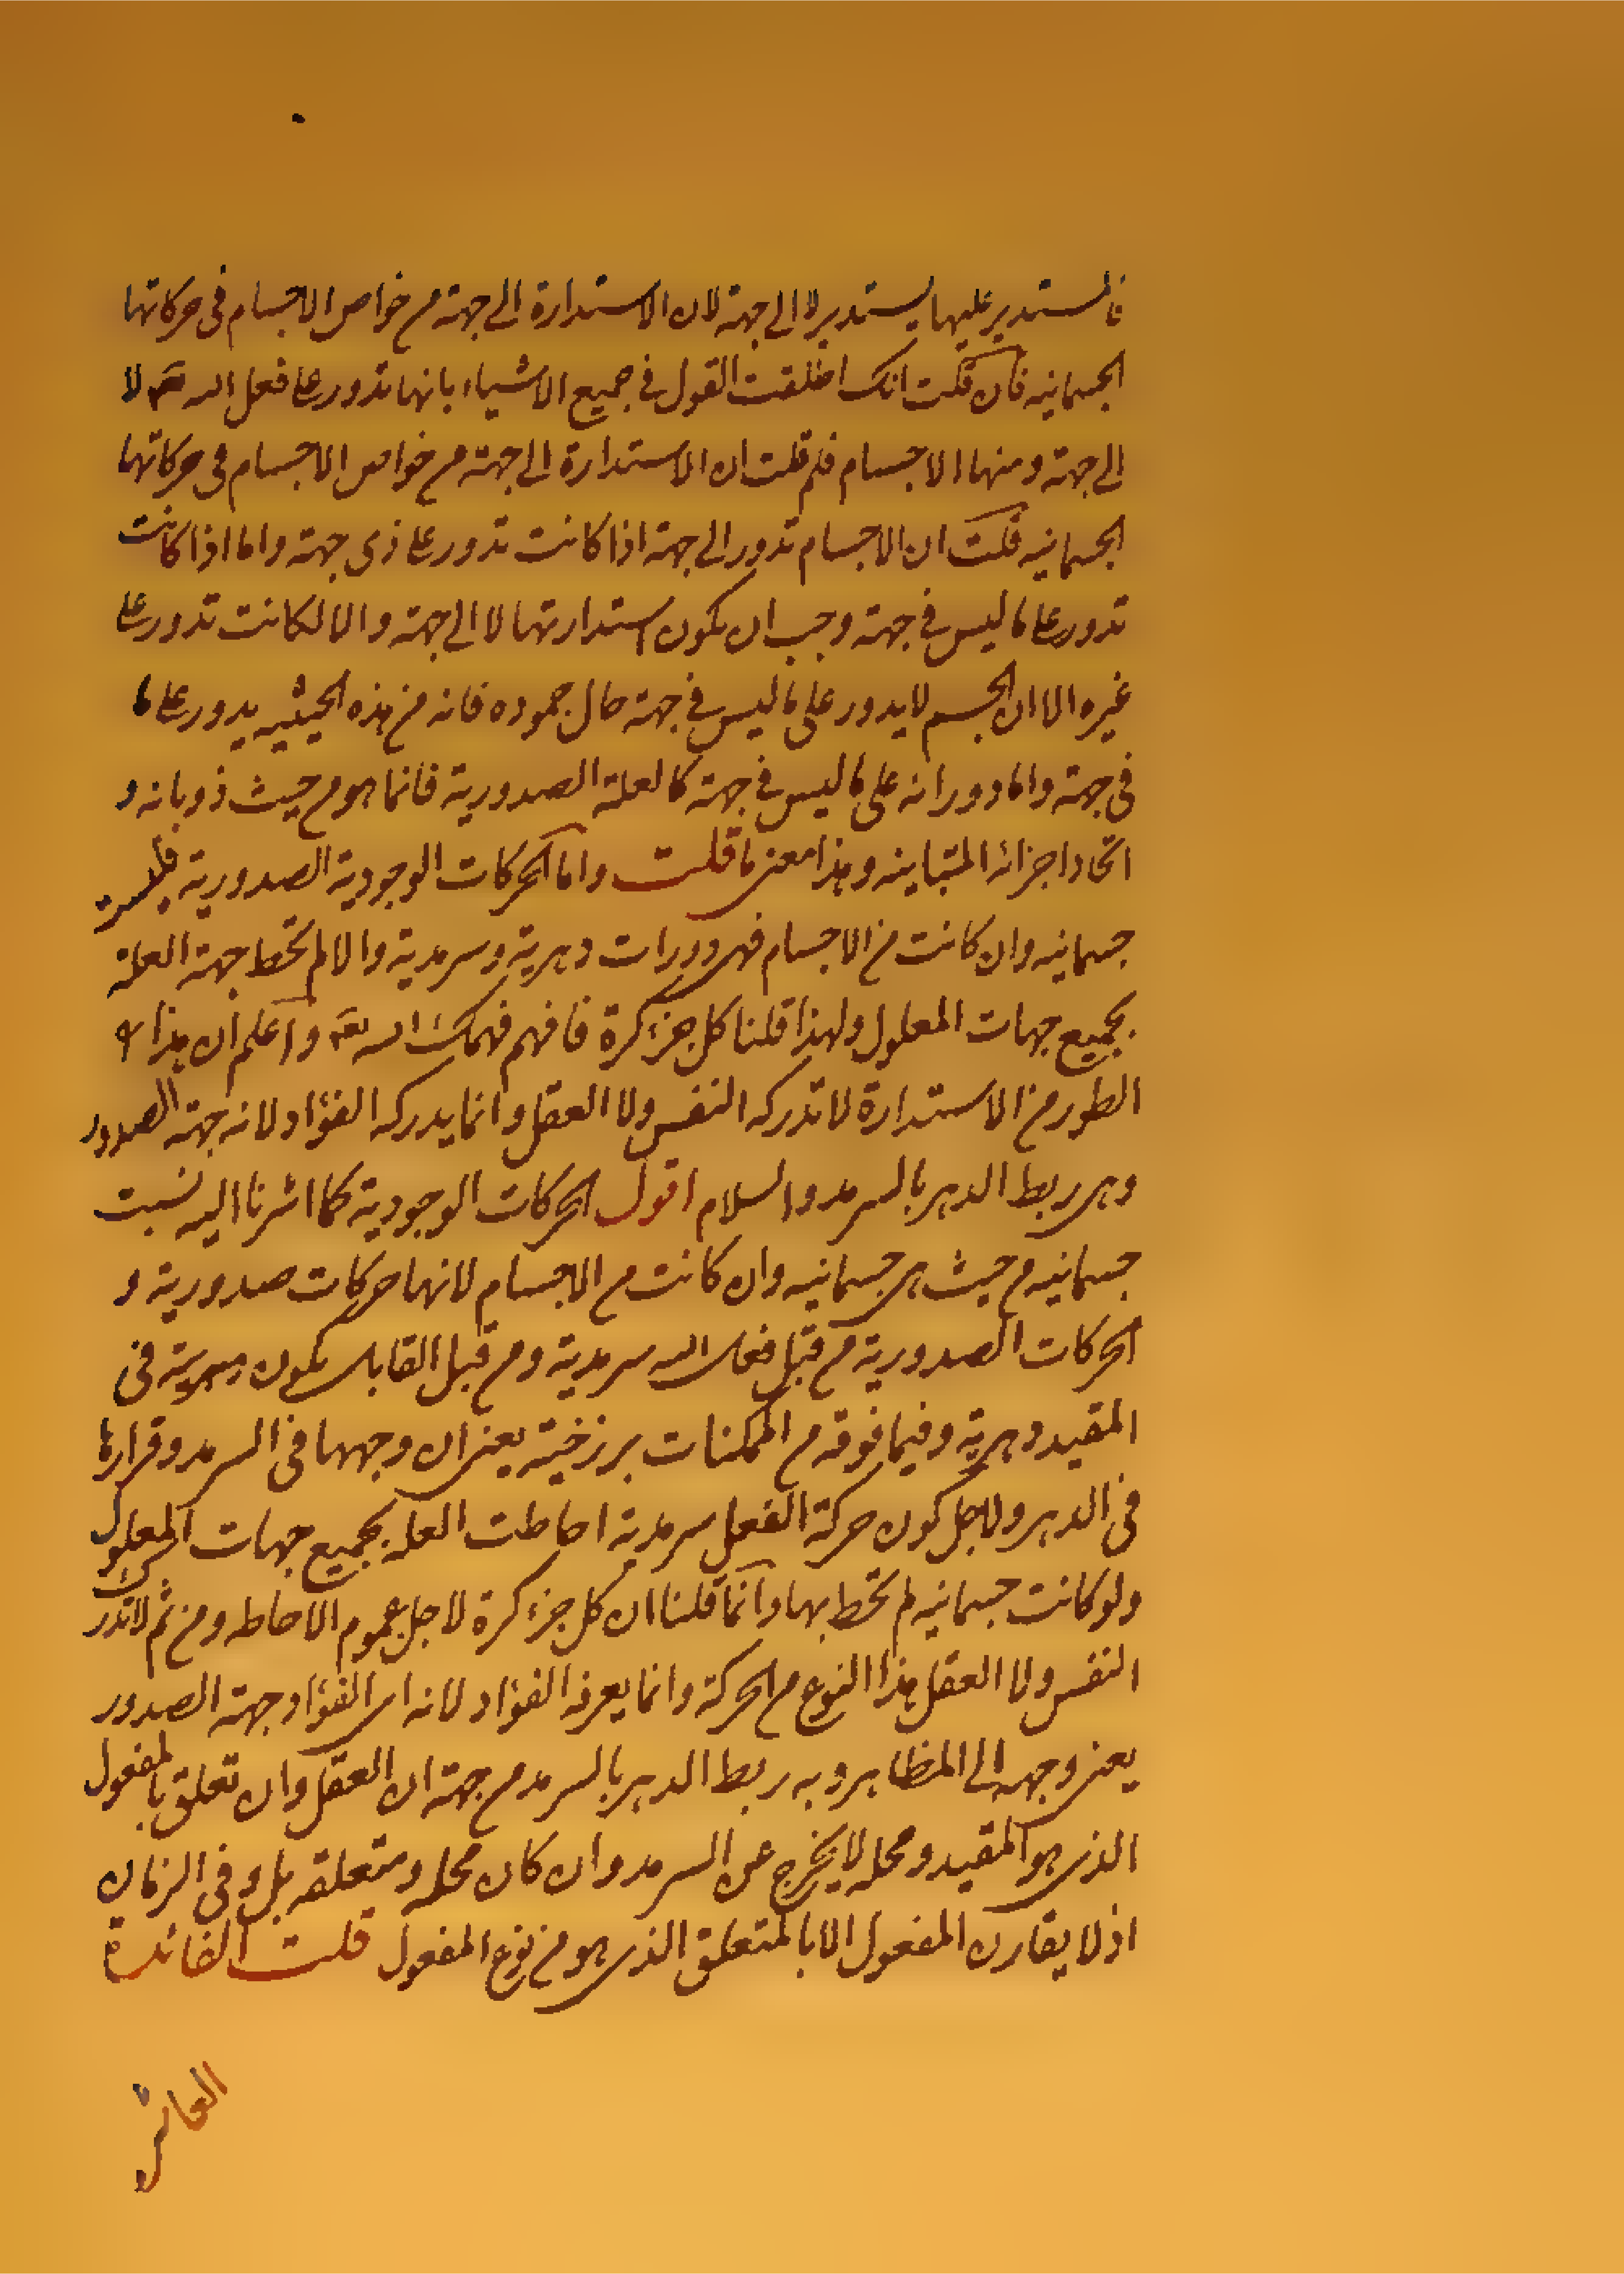 فالمستدير عليها يستدير لا الى جهة لان الاستدارة الى جهة من خواص الاجسام فى حركاتها
الجسمانيه فان قلت انك اطلقت القول فى جميع الاشياء بانها تدور على فعل الله تعالى لا
الى جهة ومنها الاجسام فلم قلت ان الاستدارة الى جهة من خواص الاجسام فى حركاتها
الجسمانيه قلت ان الاجسام تدور الى جهة اذا كانت تدور على ذى جهة واما اذا كانت
تدور على ما ليس فى جهة وجب ان يكون استدارتها لا الى جهة والا لكانت تدور على
غيره الا ان الجسم لا يدور على ما ليس فى جهة حال جموده فانه من هذه الحيثيه يدور على ما
فى جهة واما دورانه على ما ليس فى جهة كالعلة الصدورية فانما هو من حيث ذوبانه و
اتحاد اجزائه المتباينه وهذا معنى ما قلت واما الحركات الوجودية الصدورية فليست
جسمانيه وان كانت من الاجسام فهى دورات دهرية وسرمدية والا لم تحط جهة العلة
بجميع جهات المعلول ولهذا قلنا كل جزء كرة فافهم فهمك الله تعالى واعلم ان هذا
الطور من الاستدارة لا تدركه النفس ولا العقل وانما يدركه الفؤاد لانه جهة الصدور
وهى ربط الدهر بالسرمد والسلام اقول الحركات الوجودية كما اشرنا اليه ليست
جسمانيه من حيث هى جسمانيه وان كانت من الاجسام لانها حركات صدورية و
الحركات الصدورية من قبل فعل الله سرمدية ومن قبل القابل يكون فى
المقيد دهرية وفيما فوقه من الممكنات برزخية يعنى ان وجهها فى السرمد وقرارها
فى الدهر ولاجل كون حركة الفعل سرمدية احاطت العلة بجميع جهات المعلول
ولو كانت جسمانيه لم تحط بها وانما قلنا ان كل جزء كرة لاجل عموم الاحاطه ومن ثم لا تدرك
النفس ولا العقل هذا النوع من الحركة وانما يعرفه الفؤاد لانه اى الفؤاد جهة الصدور
يعنى وجهه الى المظاهر وبه ربط الدهر بالسرمد من جهة ان العقل وان تعلق بالمفعول
الذى هو المقيد ومحله لا يخرج عن السرمد وان كان محله ومتعلقه بل وفى الزمان
اذ لا يقارن المفعول الا بالمتعلق الذى هو من نوع المفعول قلت الفائدة
العاشرة